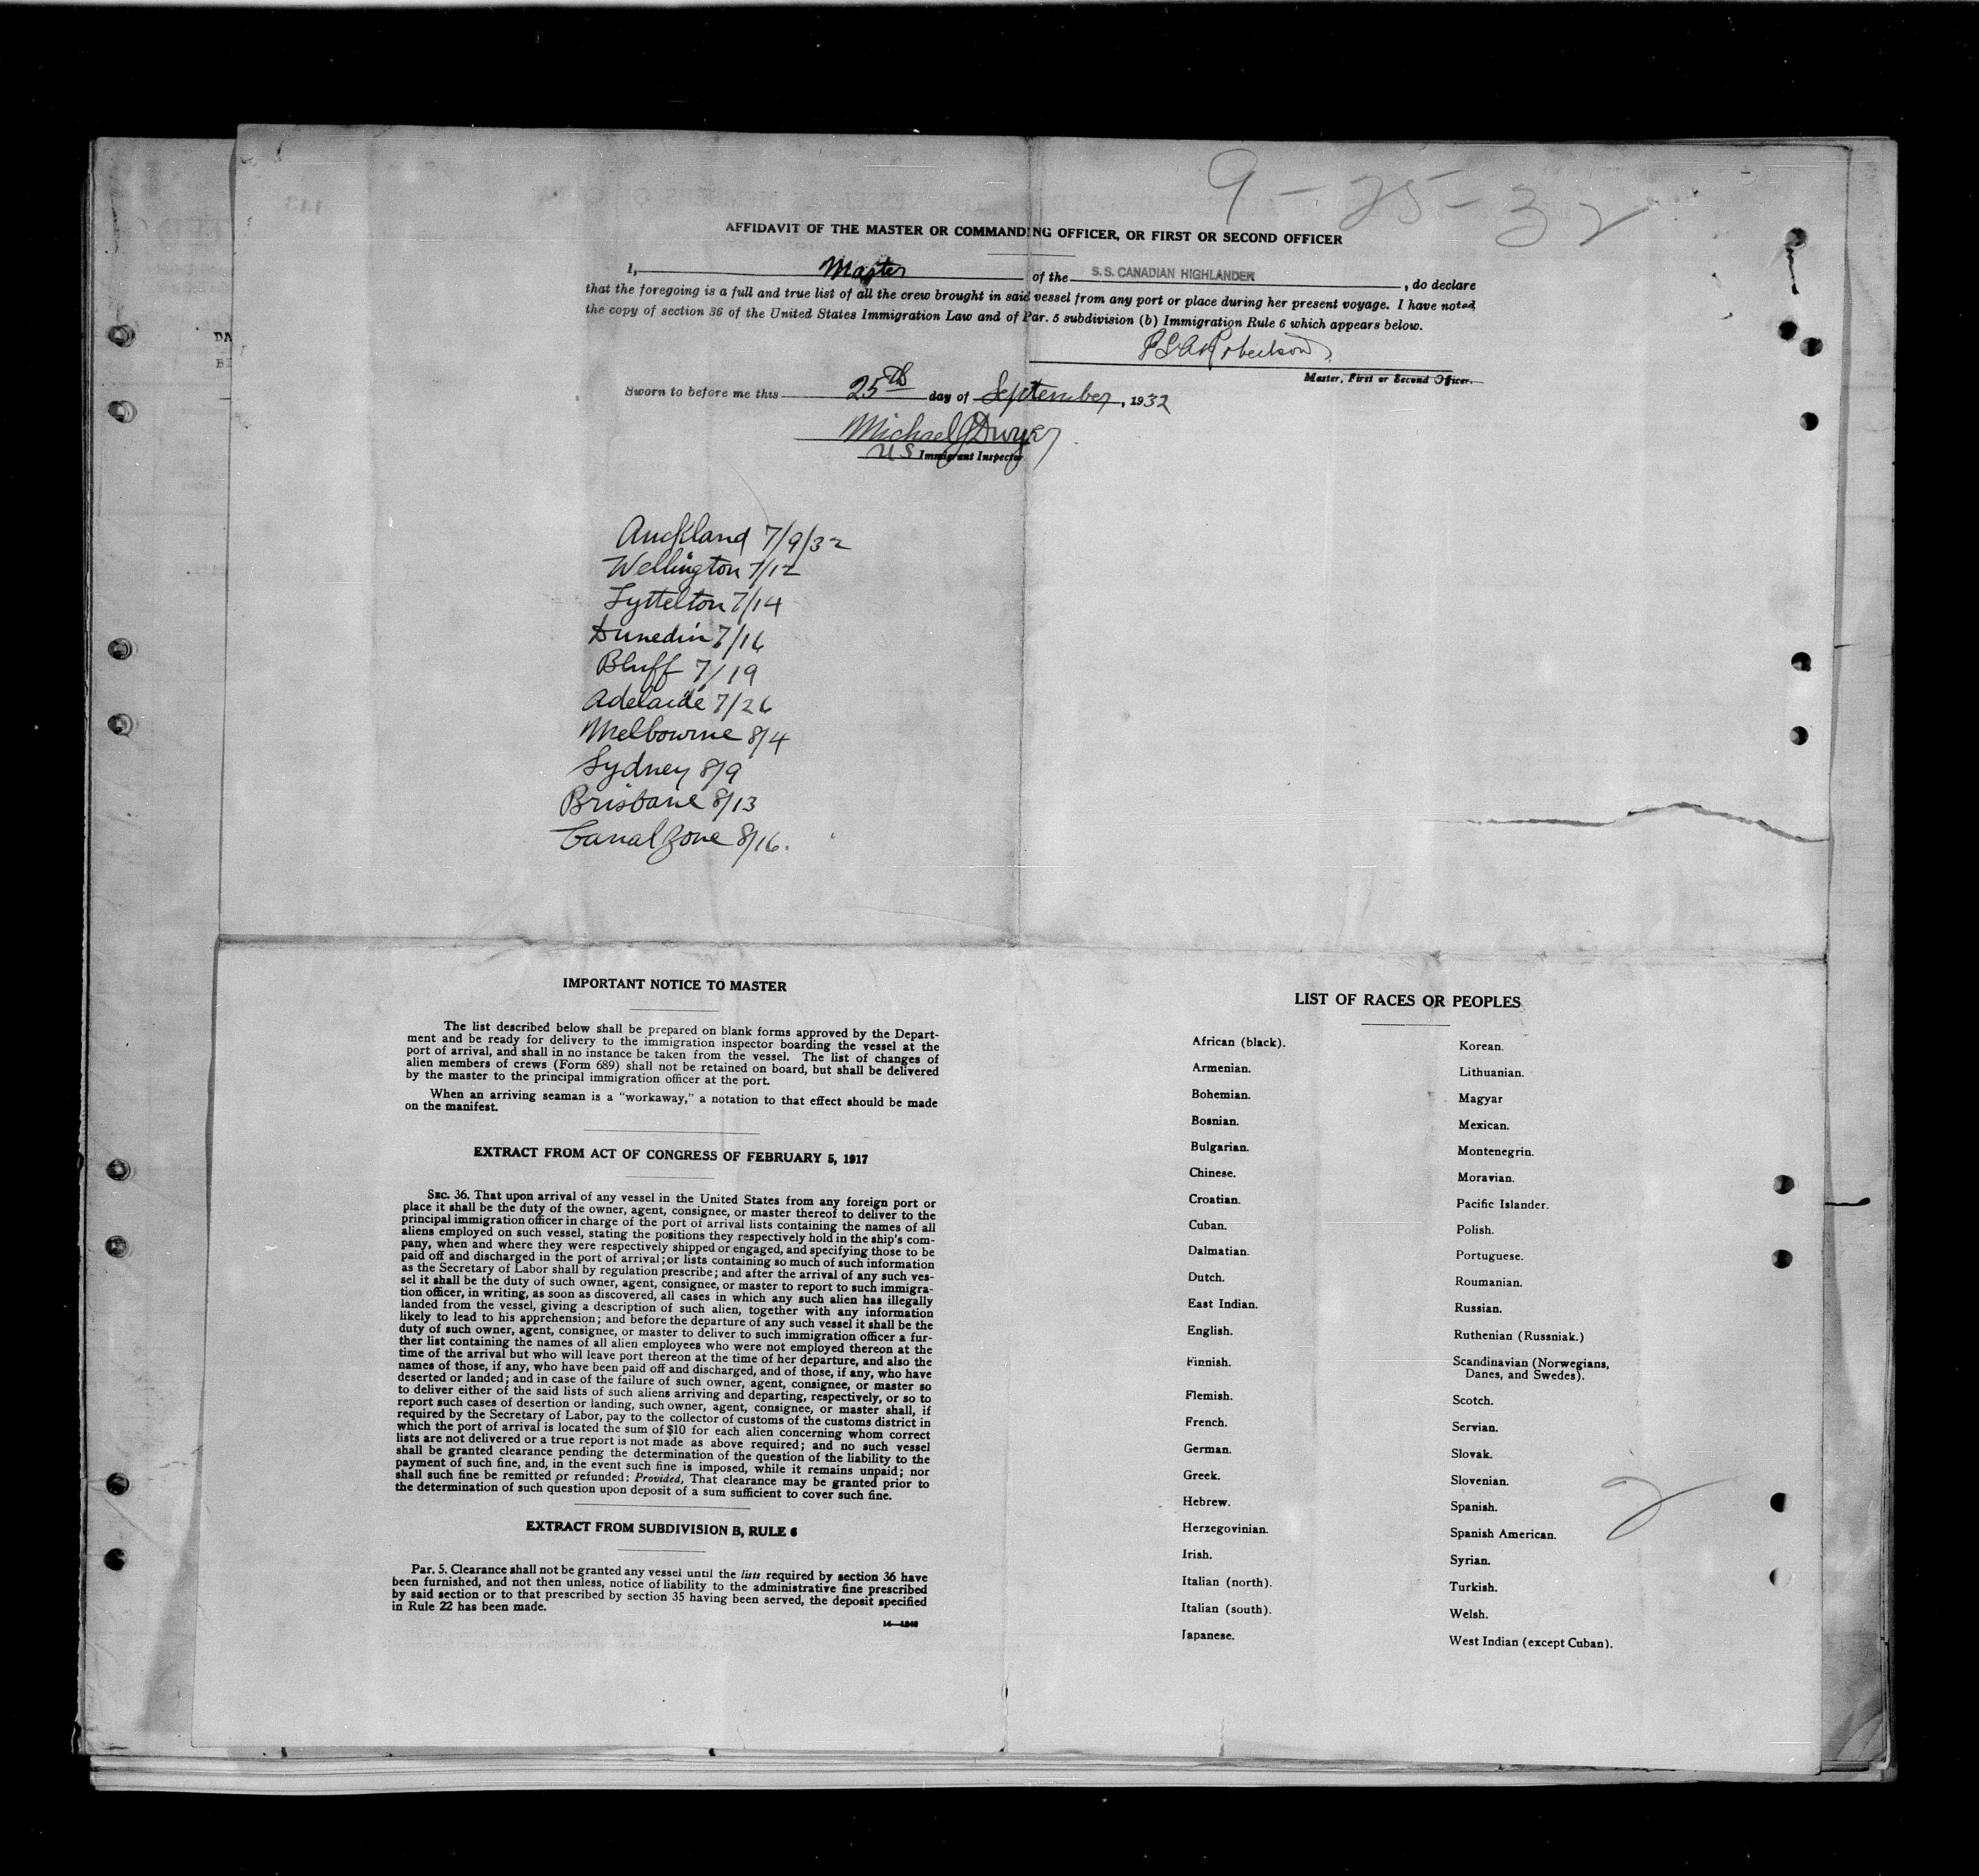 9-25-32
AFFIDAVIT OF THE MASTER OR COMMANDING OFFICER, OR FIRST OR SECOND OFFICER
I, Master of the S. S. CANADIAN HIGHLANDER, do declare
that the foregoing is a full and true list of all the crew brought in said vessel from any port or place during her present voyage. I have noted
the copy of section 36 of the United States Immigration Law and of Par. 5 subdivision (b) Immigration Rule 6 which appears below.
Robertson
Master, First or Second Officer.
Sworn to before me this 25th day of September, 1932
Michael J Dwyer
US Immigrant Inspector
Auckland 7/9/32
Wellington 7/12
Lyttelton 7/14
Dunedin 7/16
Bluff 7/19
Adelaide 7/26
Melbourne 8/4
Sydney 8/9
Brisbane 8/13
Canal Zone 8/16.
IMPORTANT NOTICE TO MASTER
The list described below shall be prepared on blank forms approved by the Depart-
ment and be ready for delivery to the immigration inspector boarding the vessel at the
port of arrival, and shall in no instance be taken from the vessel. The list of changes of
alien members of crews (Form 689) shall not be retained on board, but shall be delivered
by the master to the principal immigration officer at the port.
When an arriving seaman is a "workaway," a notation to that effect should be made
on the manifest.
EXTRACT FROM ACT OF CONGRESS OF FEBRUARY 5, 1917
SEC. 36. That upon arrival of any vessel in the United States from any foreign port or
place it shall be the duty of the owner, agent, consignee, or master thereof to deliver to the
principal immigration officer in charge of the port of arrival lists containing the names of all
aliens employed on such vessel, stating the positions they respectively hold in the ship's com-
pany, when and where they were respectively shipped or engaged, and specifying those to be
paid off and discharged in the port of arrival; or lists containing so much of such information
as the Secretary of Labor shall by regulation prescribe; and after the arrival of any such ves-
sel it shall be the duty of such owner, agent, consignee, or master to report to such immigra-
tion officer, in writing, as soon as discovered, all cases in which any such alien has illegally
landed from the vessel, giving a description of such alien, together with any information
likely to lead to his apprehension; and before the departure of any such vessel it shall be the
duty of such owner, agent, consignee, or master to deliver to such immigration officer a fur-
ther list containing the names of all alien employees who were not employed thereon at the
time of the arrival but who will leave port thereon at the time of her departure, and also the
names of those, if any, who have been paid off and discharged, and of those, if any, who have
deserted or landed; and in case of the failure of such owner, agent, consignee, or master so
to deliver either of the said lists of such aliens arriving and departing, respectively, or so to
report such cases of desertion or landing, such owner, agent, consignee, or master shall, if
required by the Secretary of Labor, pay to the collector of customs of the customs district in
which the port of arrival is located the sum of $10 for each alien concerning whom correct
lists are not delivered or a true report is not made as above required; and no such vessel
shall be granted clearance pending the determination of the question of the liability to the
payment of such fine, and, in the event such fine is imposed, while it remains unpaid; nor
shall such fine be remitted or refunded: Provided, That clearance may be granted prior to
the determination of such question upon deposit of a sum sufficient to cover such fine.
EXTRACT FROM SUBDIVISION B, RULE 6
Par. 5. Clearance shall not be granted any vessel until the lists required by section 36 have
been furnished, and not then unless, notice of liability to the administrative fine prescribed
by said section or to that prescribed by section 35 having been served, the deposit specified
in Rule 22 has been made.
LIST OF RACES OR PEOPLES
African (black).
Armenian.
Bohemian.
Bosnian.
Bulgarian.
Chinese.
Croatian.
Cuban.
Dalmatian.
Dutch.
East Indian.
English.
Finnish.
Flemish.
French.
German.
Greek.
Hebrew.
Herzegovinian.
Irish.
Italian (north).
Italian (south).
Japanese.
Korean.
Lithuanian.
Magyar
Mexican.
Montenegrin.
Moravian.
Pacific Islander.
Polish.
Portuguese.
Roumanian.
Russian.
Ruthenian (Russniak.)
Scandinavian (Norwegians,
Danes, and Swedes).
Scotch.
Servian.
Slovak.
Slovenian.
Spanish.
Spanish American.
Syrian.
Turkish.
Welsh.
West Indian (except Cuban).
2